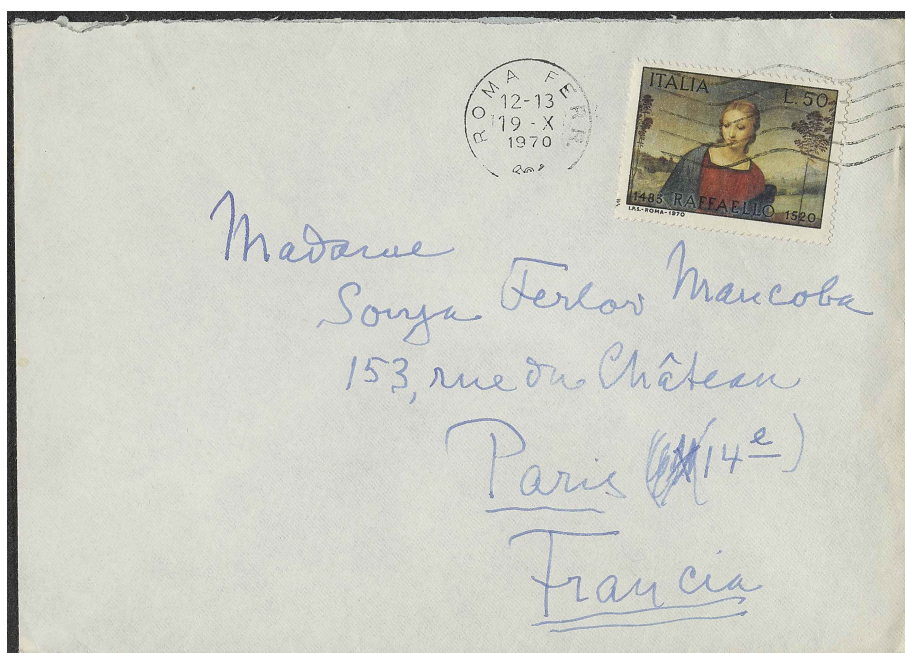 ROMA FERR.
12-13
19-X
1970
ITALIA L.50
1483 RAFFAELLO 1520
I.P.S.-ROMA-1970
Madame
Sonja Ferlov Mancoba
153, rue du Château
Paris (14e)
Francia